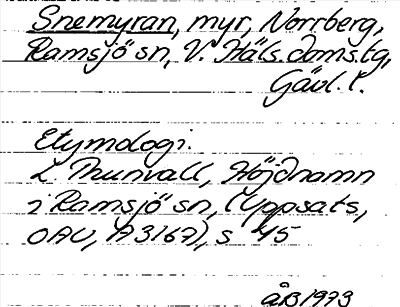 Snemyran, myr, Norrberg,
Ramsjö sn, V. Häls. doms.tg,
Gävl. l.
Etymologi.
L Thunvall, Höjdnamn
i Ramsjö sn, (Uppsats,
OAU, A3167), s 45
ÅB 1973